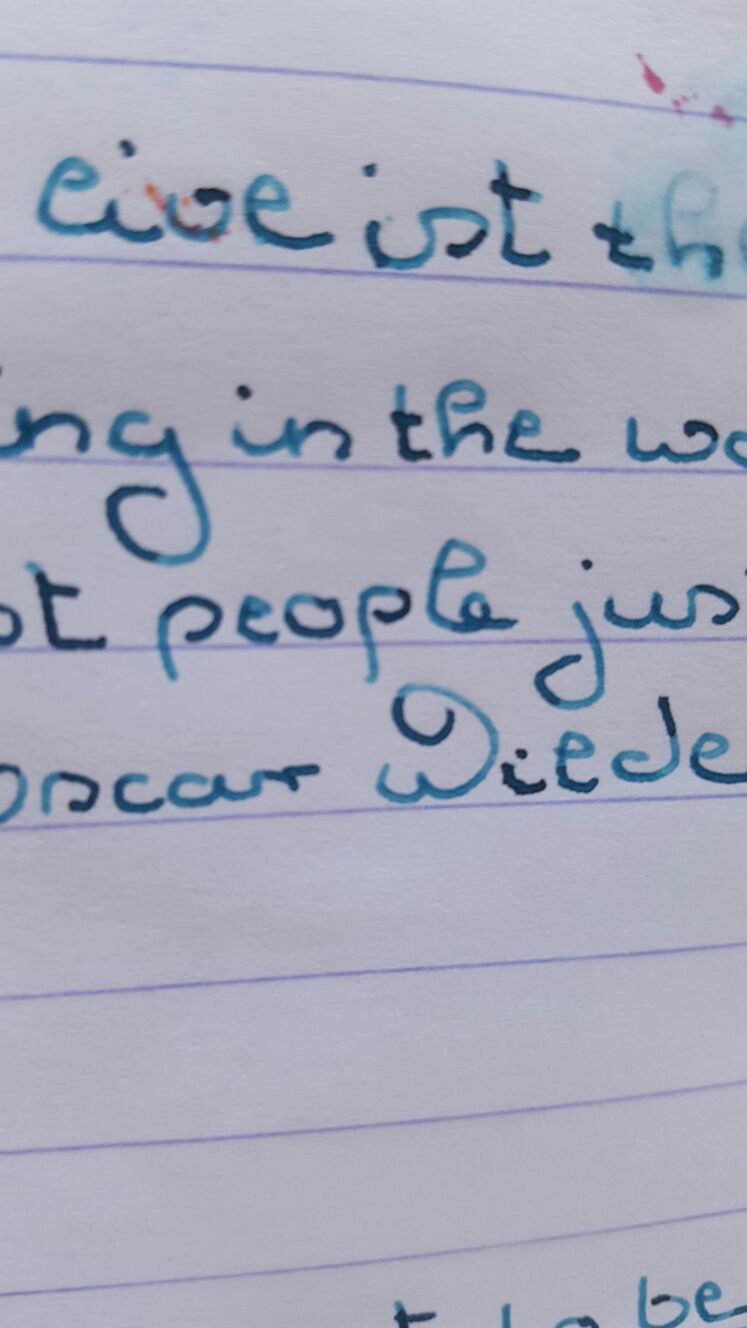 eive ist the
ing in the wo
ot people jus
oscar Wiede
to be